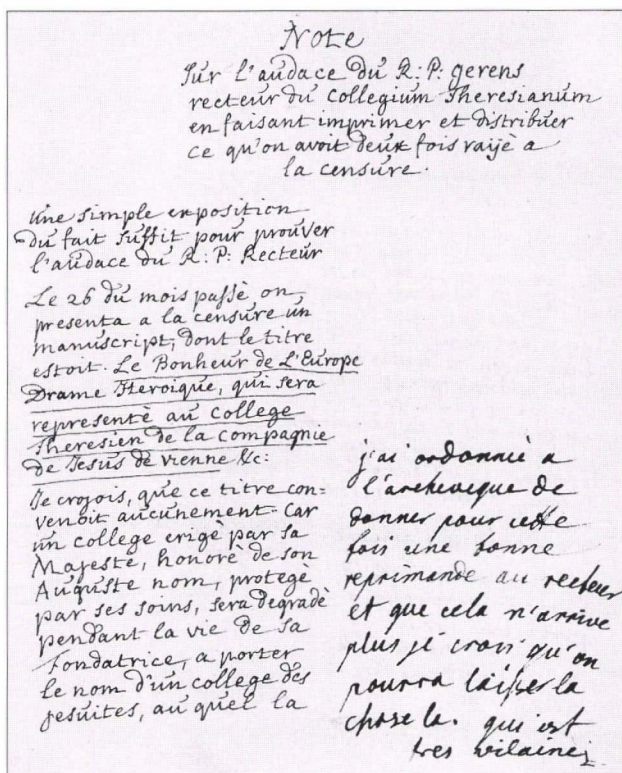 Note
Sur l'audace du R: P: gerens
recteur du Collegium Theresianum
en faisant imprimer et distribuer
ce qu'on avoit deux fois raijé a
la censure.
Une simple exposition
du fait suffit pour prouver
l'audace du R: P: Recteur
Le 26 du mois passè on
presenta a la censure un
manuscript, dont le titre
estoit. Le Bonheur de L'Europe
Drame Heroique, qui sera
representè au college
Theresien de la Compagnie
de Jesus de vienne &c:
Je crojois, que ce titre con=
venoit aucunement. Car
un college erigè par sa
Majeste, honorè de son
Auguste nom, protegè
par ses soins, sera degradè
pendant la vie de sa
Fondatrice, a porter
le nom d'un college des
jesuites, au quel la
j'ai ordonnié a
l'archeveque de
donner pour cette
fois une bonne
reprimande au recteur
et que cela n'arrive
plus je crois qu'on
pourra laisser la
chose la. qui est
tres vilaine